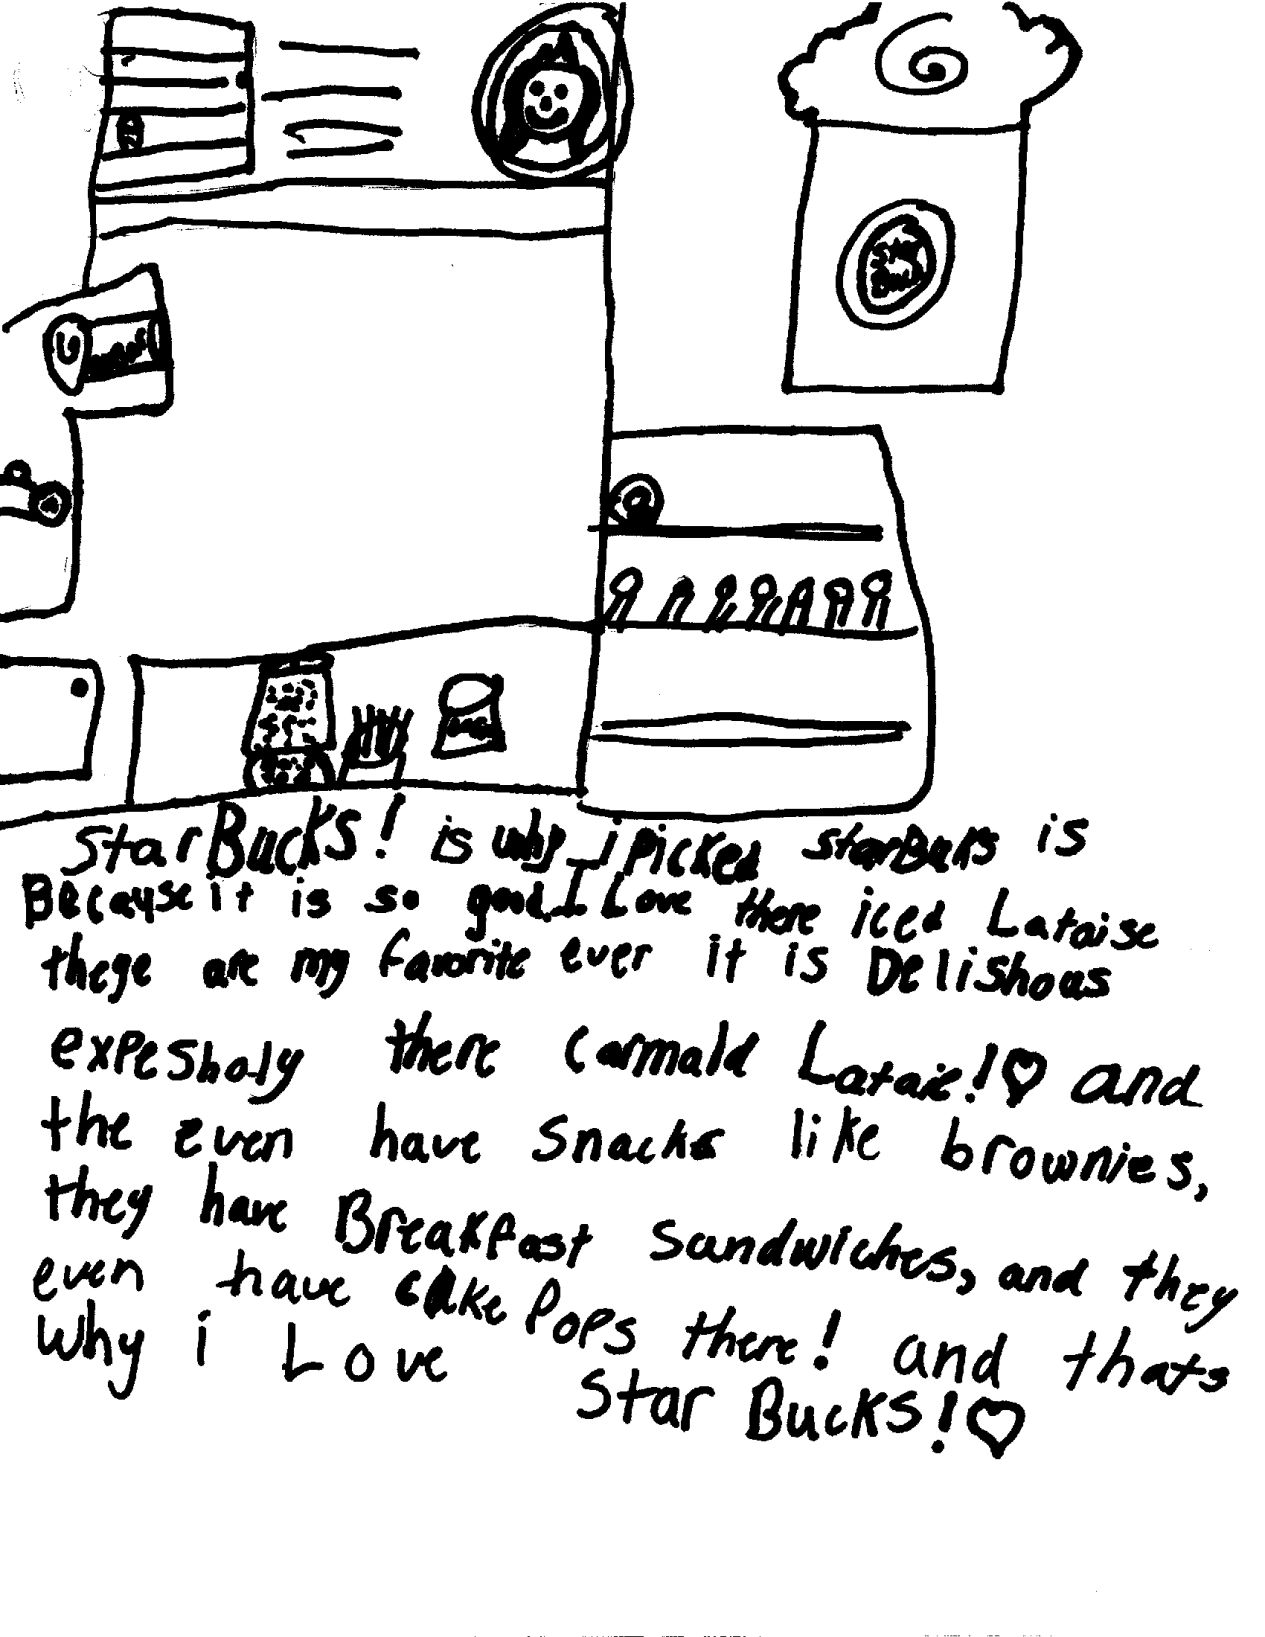 Star
Bucks
StarBucks! is why i picked starBucks is
Because it is so good. I Love there iced Lataise
these are my favorite ever it is Delishoas
expesholy there carmald Lataie! and
the even have snacks like brownies,
they have Breakfast sandwiches, and they
even have cake pops there! and thats
why i Love
Star Bucks!